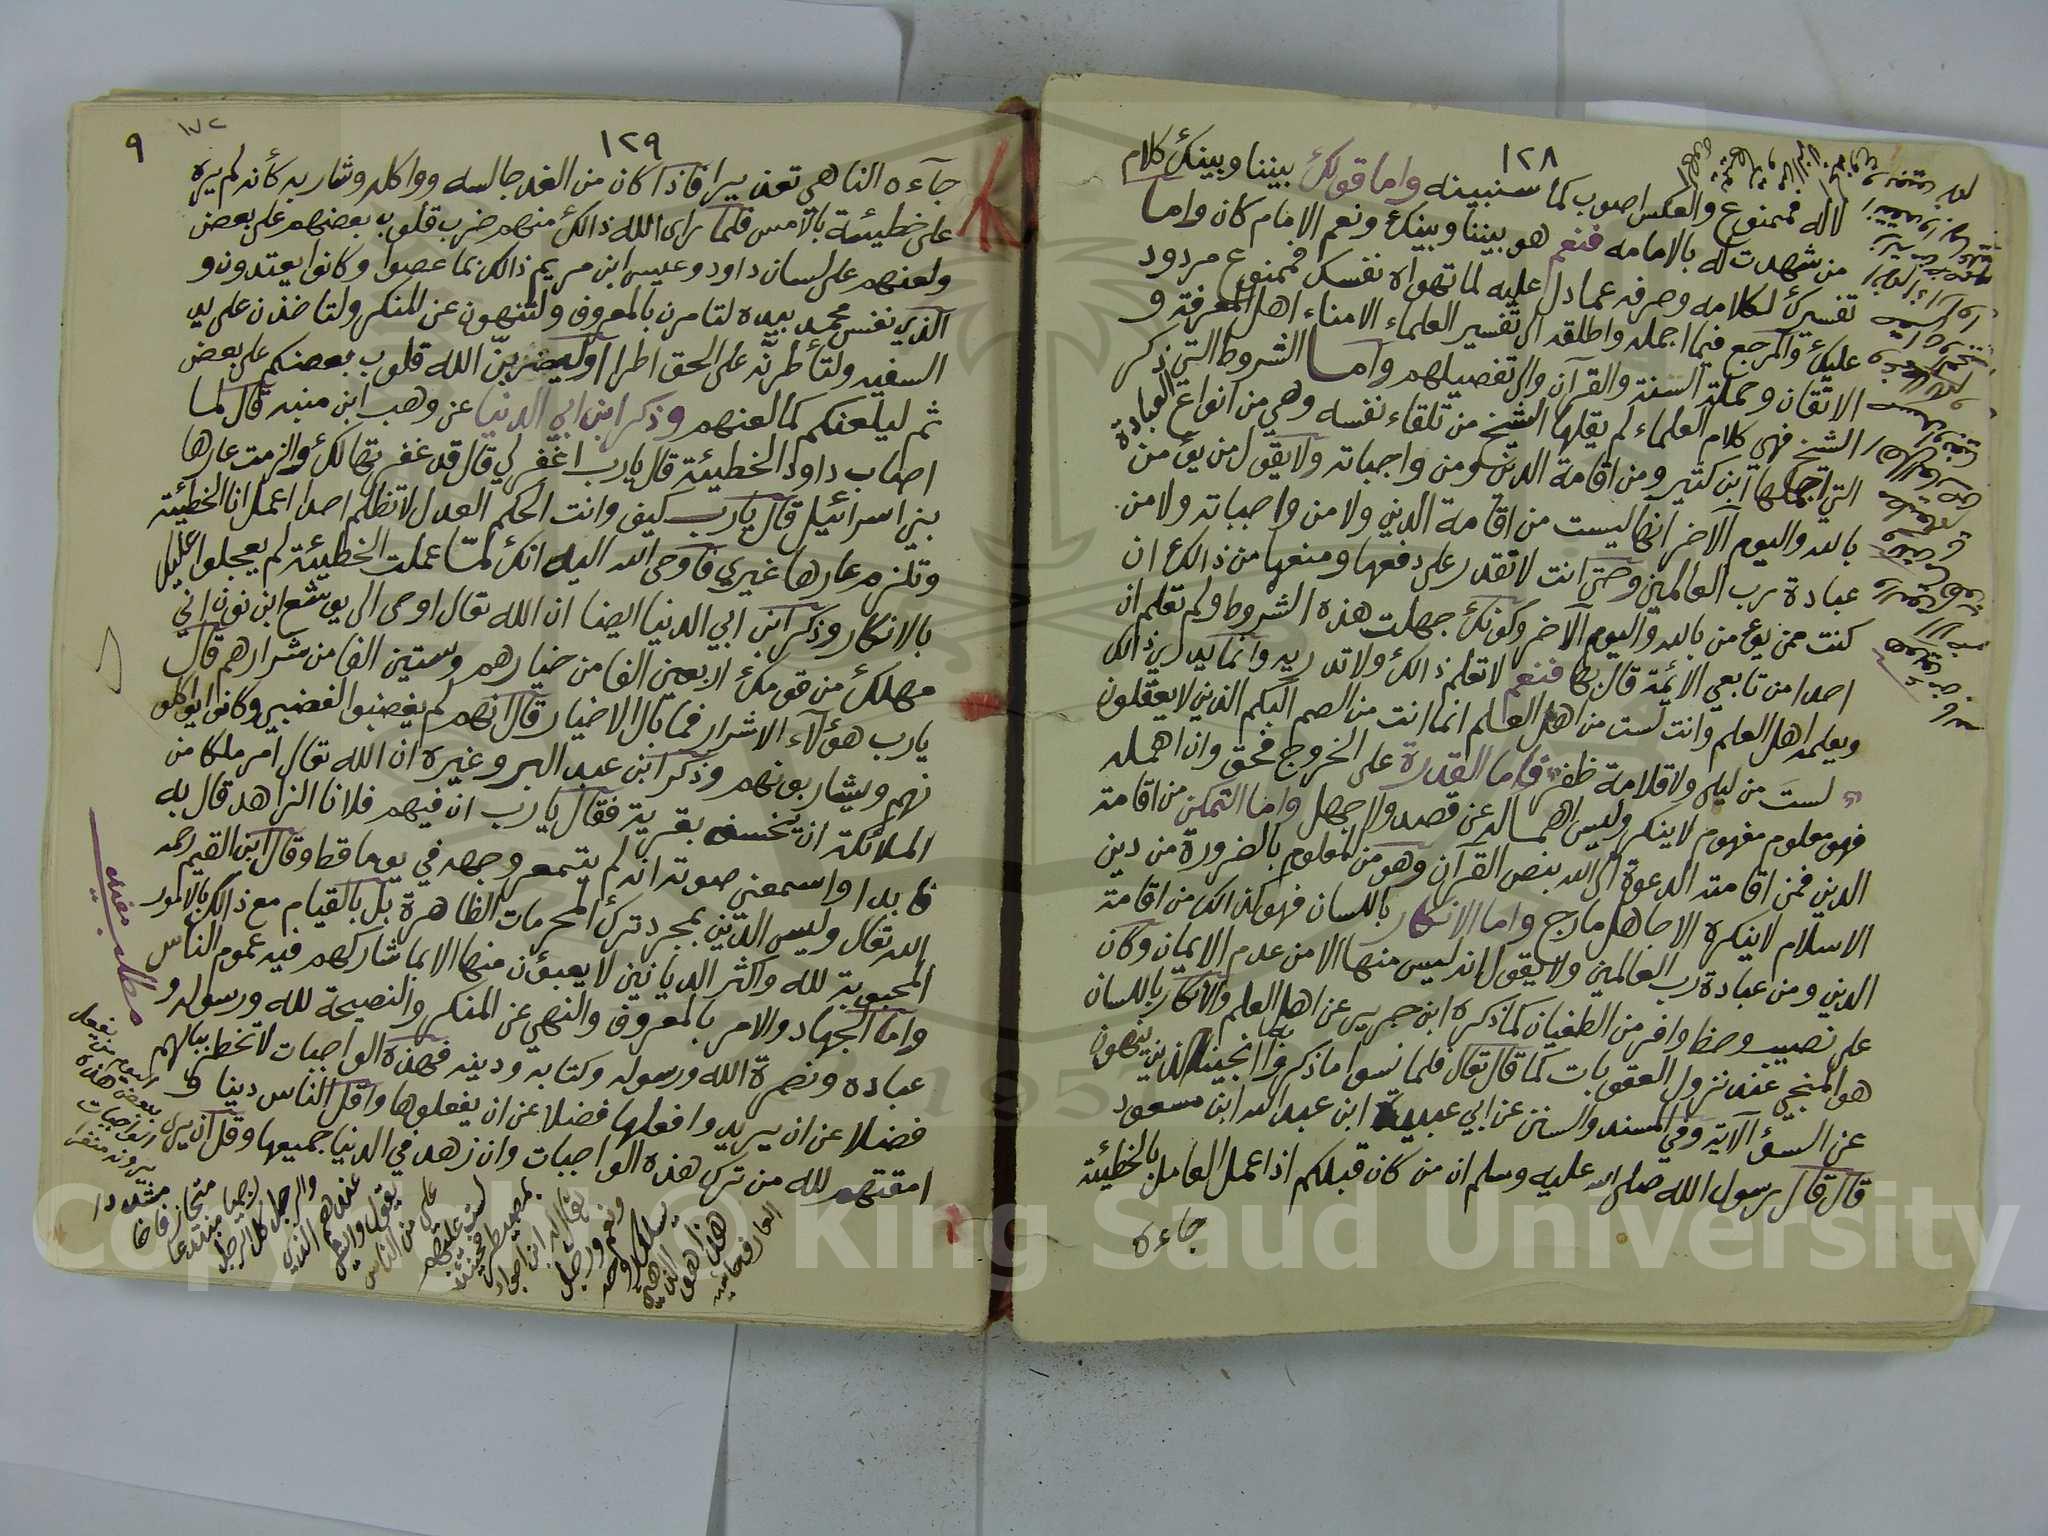 ١٢٨
لا له فممنوع والعكس اصوب كما سنبينه واما قولك بيننا وبينك كلام
من شهدت له بالامامه فنعم هو بيننا وبينك ونعم الامام كان واما
تفسيرك لكلامه وصرفه عما دل عليه لما تهواه نفسك فممنوع مردود
عليك والمرجع فيما اجمله واطلقه الى تفسير العلماء الامناء اهل المعرفة و
الاتقان وحملة السنة والقرآن والى تفصيلهم واما الشروط التي ذكر
الشيخ فهي كلام العلماء لم يقلها الشيخ من تلقاء نفسه وهي من انواع العبادة
التي اجملها ابن كثير ومن اقامة الدين ومن واجباته ولا يقول من يؤمن
بالله واليوم الآخر انها ليست من اقامة الدين ولا من واجباته ولا من
عبادة رب العالمين وحتى انت لا تقدر على دفعها ومنعها من ذالك ان
كنت ممن يؤمن بالله واليوم الآخر وكونك جهلت هذه الشروط ولم تعلم ان
احدا من تابعي الائمة قال بها فنعم لا تعلم ذالك ولا تدريه وانما يدري ذالك
ويعلمه اهل العلم وانت لست من اهل العلم انما انت من الصم البكم الذين لا يعقلون
لست من ليلى ولا قلامة ظفر فاما القدرة على الخروج فحق وان اهمله
فهو معلوم مفهوم لا ينكر وليس اهماله عن قصد ولا جهل واما التمكن من اقامة
الدين فمن اقامته الدعوة الى الله بنص القرآن وهو من المعلوم بالضرورة من دين
الاسلام لا ينكره الا جاهل مارج واما الانكار باللسان فهو كذالك من اقامة
الدين ومن عبادة رب العالمين ولا يقول انه ليس منها الا من عدم الايمان وكان
على نصيب وحظ وافر من الطغيان كما ذكره ابن جرير عن اهل العلم والانكار باللسان
هو المنجي عند نزول العقوبات كما قال تعالى فلما نسوا ما ذكروا به انجينا الذين ينهون
عن السؤ الآية وفي المسند والسنن عن ابي عبيدة ابن عبد الله ابن مسعود
قال قال رسول الله صلى الله عليه وسلم ان من كان قبلكم اذا عمل العامل بالخطيئة
جاءه
١٢٩
٩
١٧٢
جآءه الناهي تعذيرا فاذا كان من الغد جالسه وواكله وشاربه كأنه لم يره
على خطيئة بالامس فلما راى الله ذالك منهم ضرب قلوب بعضهم على بعض
ولعنهم على لسان داود وعيسى ابن مريم ذالك بما عصوا وكانوا يعتدون و
الذي نفس محمد بيده لتامرن بالمعروف ولتنهون عن المنكر ولتاخذن على يد
السفيه ولتأطرنّه على الحق اطرا او ليضربنّ الله قلوب بعضكم على بعض
ثم ليلعنكم كما لعنهم وذكر ابن ابي الدنيا عن وهب ابن منبه قال لما
اصاب داود الخطيئة قال يا رب اغفر لي قال قد غفرتها لك والزمت عارها
بني اسرائيل قال يا رب كيف وانت الحكم العدل لا تظلم احدا اعمل انا الخطيئة
وتلزم عارها غيري فاوحى الله اليه انك لما عملت الخطيئة لم يعجلوا عليك
بالانكار وذكر ابن ابي الدنيا ايضا ان الله تعالى اوحى الى يوشع ابن نون اني
مهلك من قومك اربعين الفا من خيارهم وستين الفا من شرارهم قال
يا رب هؤلآء الاشرار فما بال الاخيار قال انهم لم يغضبوا لغضبي وكانوا يواكلو
نهم ويشاربونهم وذكر ابن عبد البر وغيره ان الله تعالى امر ملكا من
الملائكة ان يخسف بقرية فقال يا رب ان فيهم فلانا الزاهد قال به
فابدا واسمعني صوته انه لم يتمعر وجهه في يوما قط وقال ابن القيم رحمه
الله تعالى وليس الدين بمجرد ترك المحرمات الظاهرة بل بالقيام مع ذالك بالامور
المحبوبة لله واكثر الديانين لا يعبؤن منها الا بما شاركهم فيه عموم الناس
واما الجهاد والامر بالمعروف والنهي عن المنكر والنصيحة لله ورسوله و
عباده ونصرة الله ورسوله وكتابه ودينه فهذه الواجبات لا تخطر ببالهم
فضلا عن ان يريدوا فعلها فضلا عن ان يفعلوها واقل الناس دينا و
امقتهم لله من ترك هذه الواجبات وان زهد في الدنيا جميعها وقل ان يرى
مطلب مفيد
Copyright © King Saud University
1957